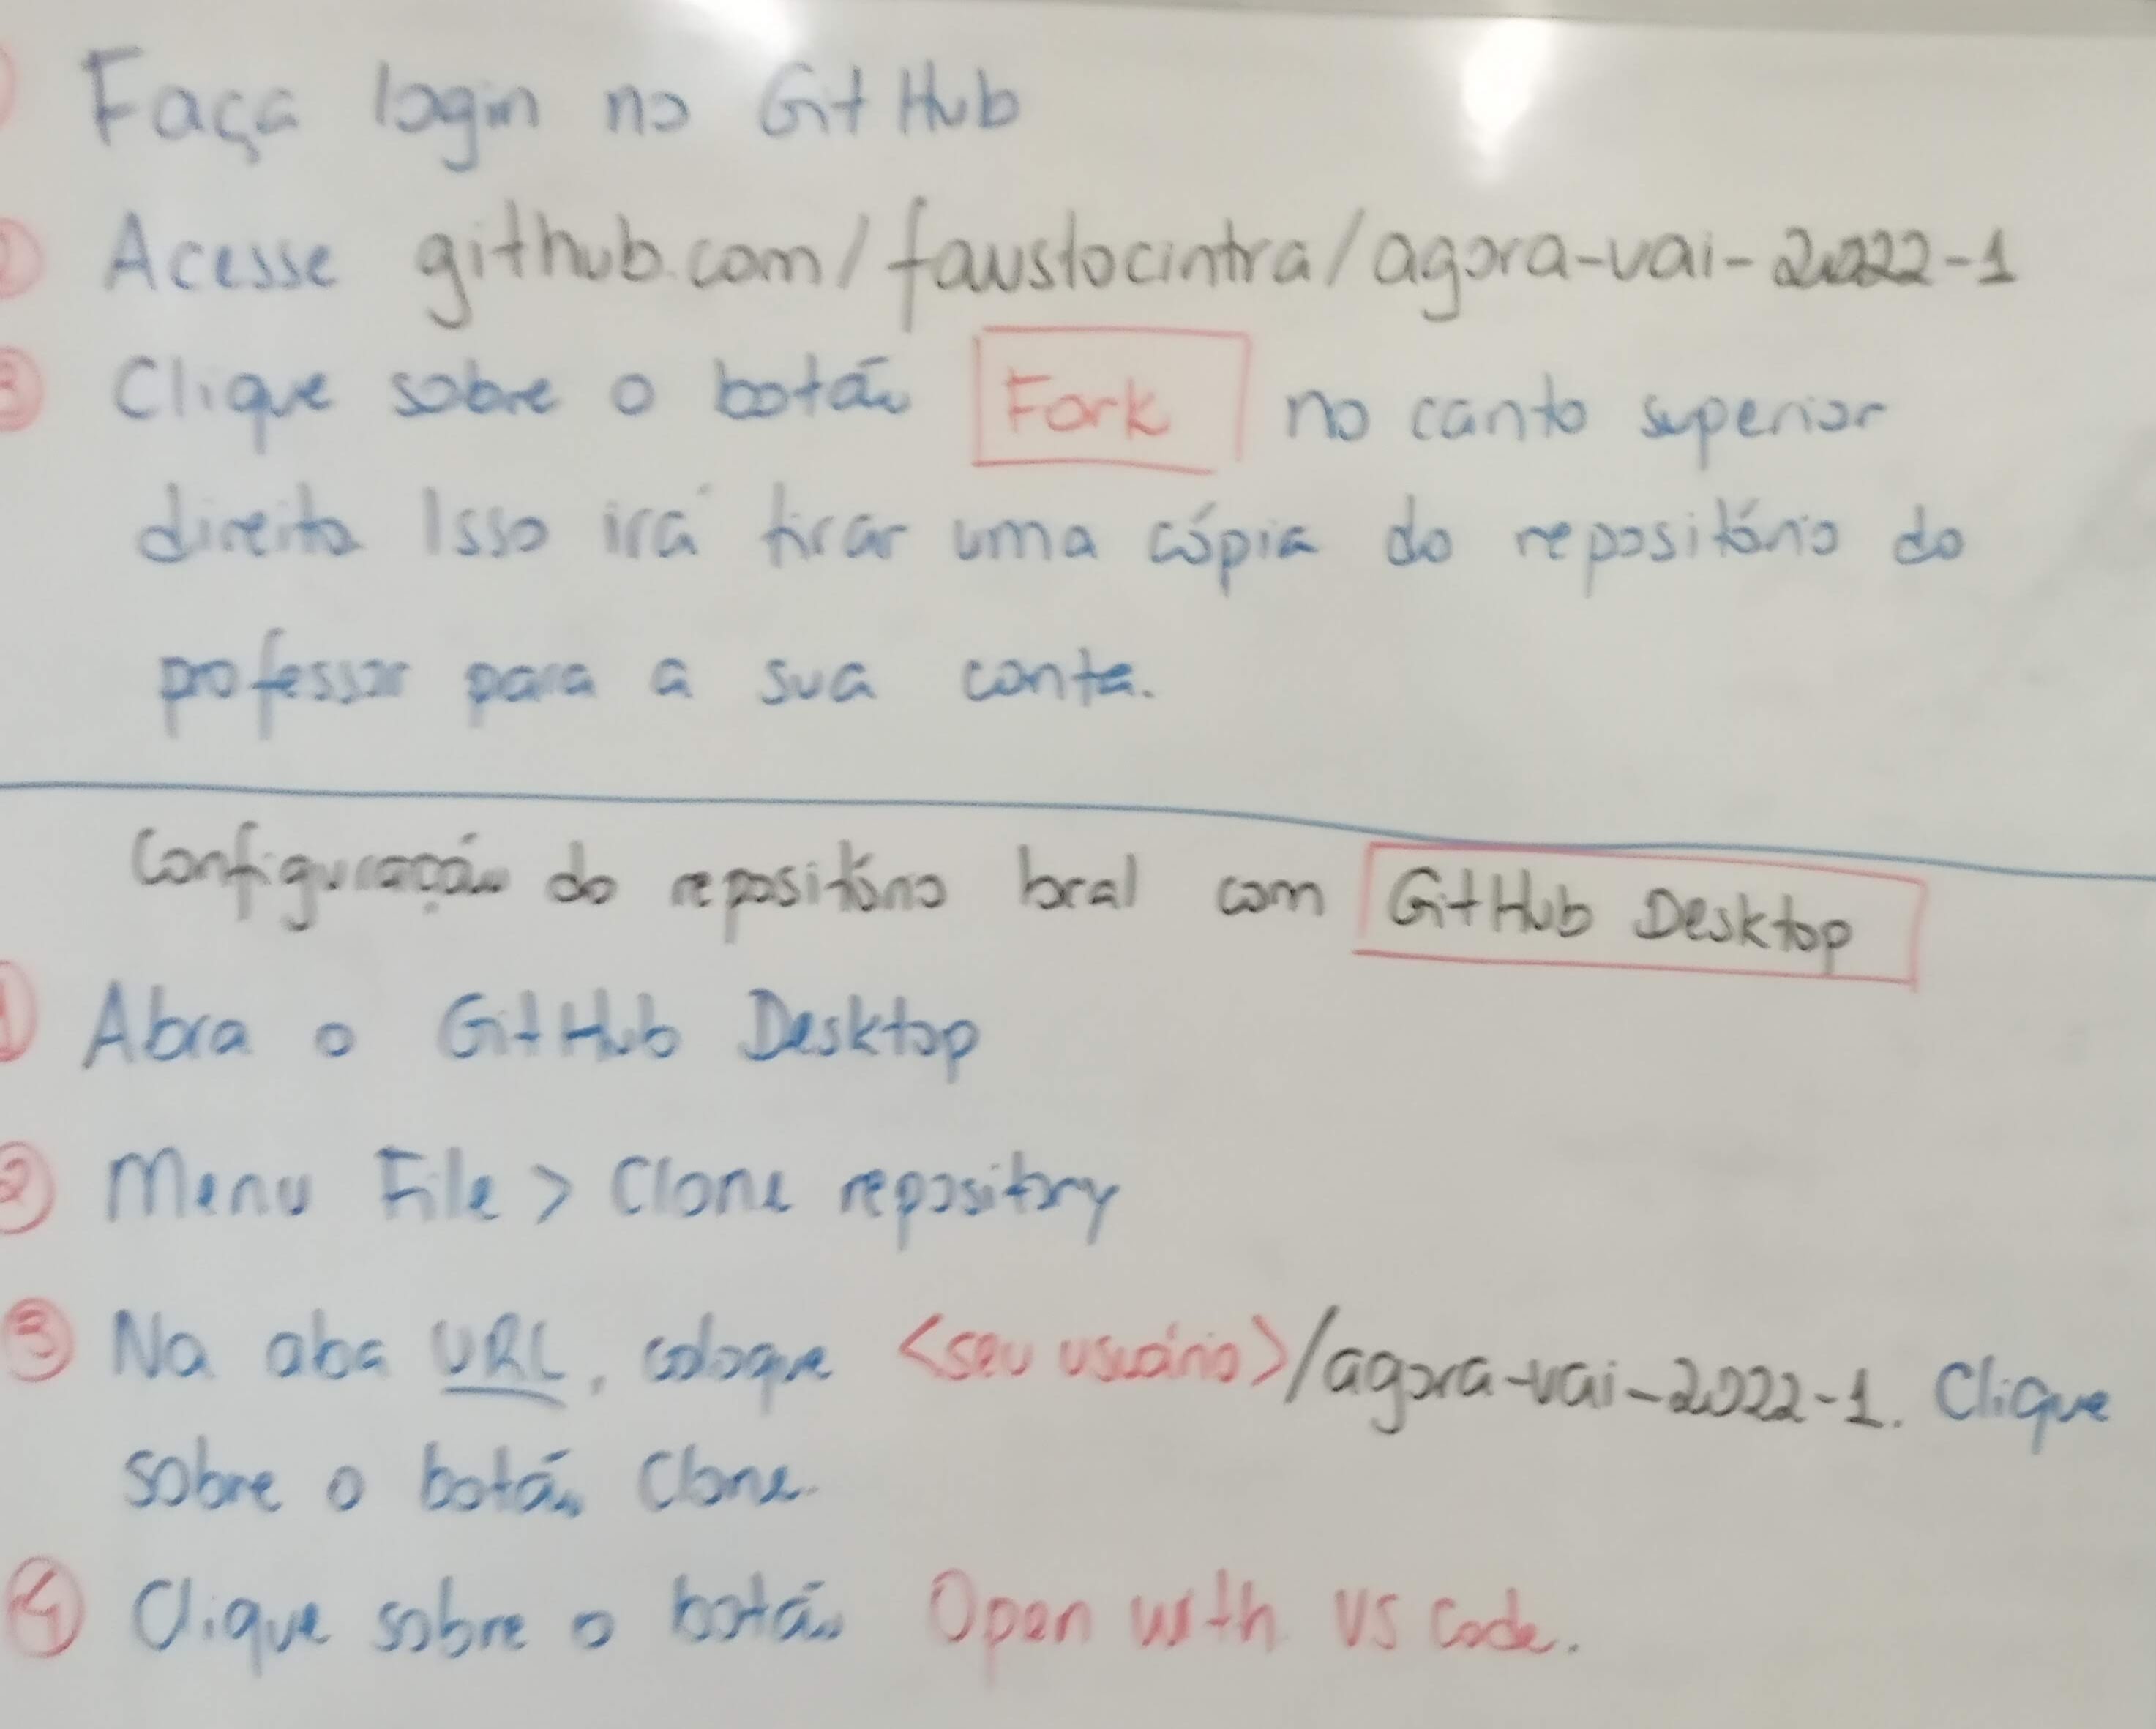 ① Faça login no GitHub
② Acesse github.com/faustocintra/agora-vai-2022-1
③ Clique sobre o botão Fork no canto superior
direito Isso irá tirar uma cópia do repositório do
professor para a sua conta.
Configuração do repositório local com GitHub Desktop
① Abra o GitHub Desktop
② Menu File > Clone repository
③ Na aba URL, coloque <seu usuário>/agora-vai-2022-1. Clique
sobre o botão Clone.
④ Clique sobre o botão Open with VS Code.